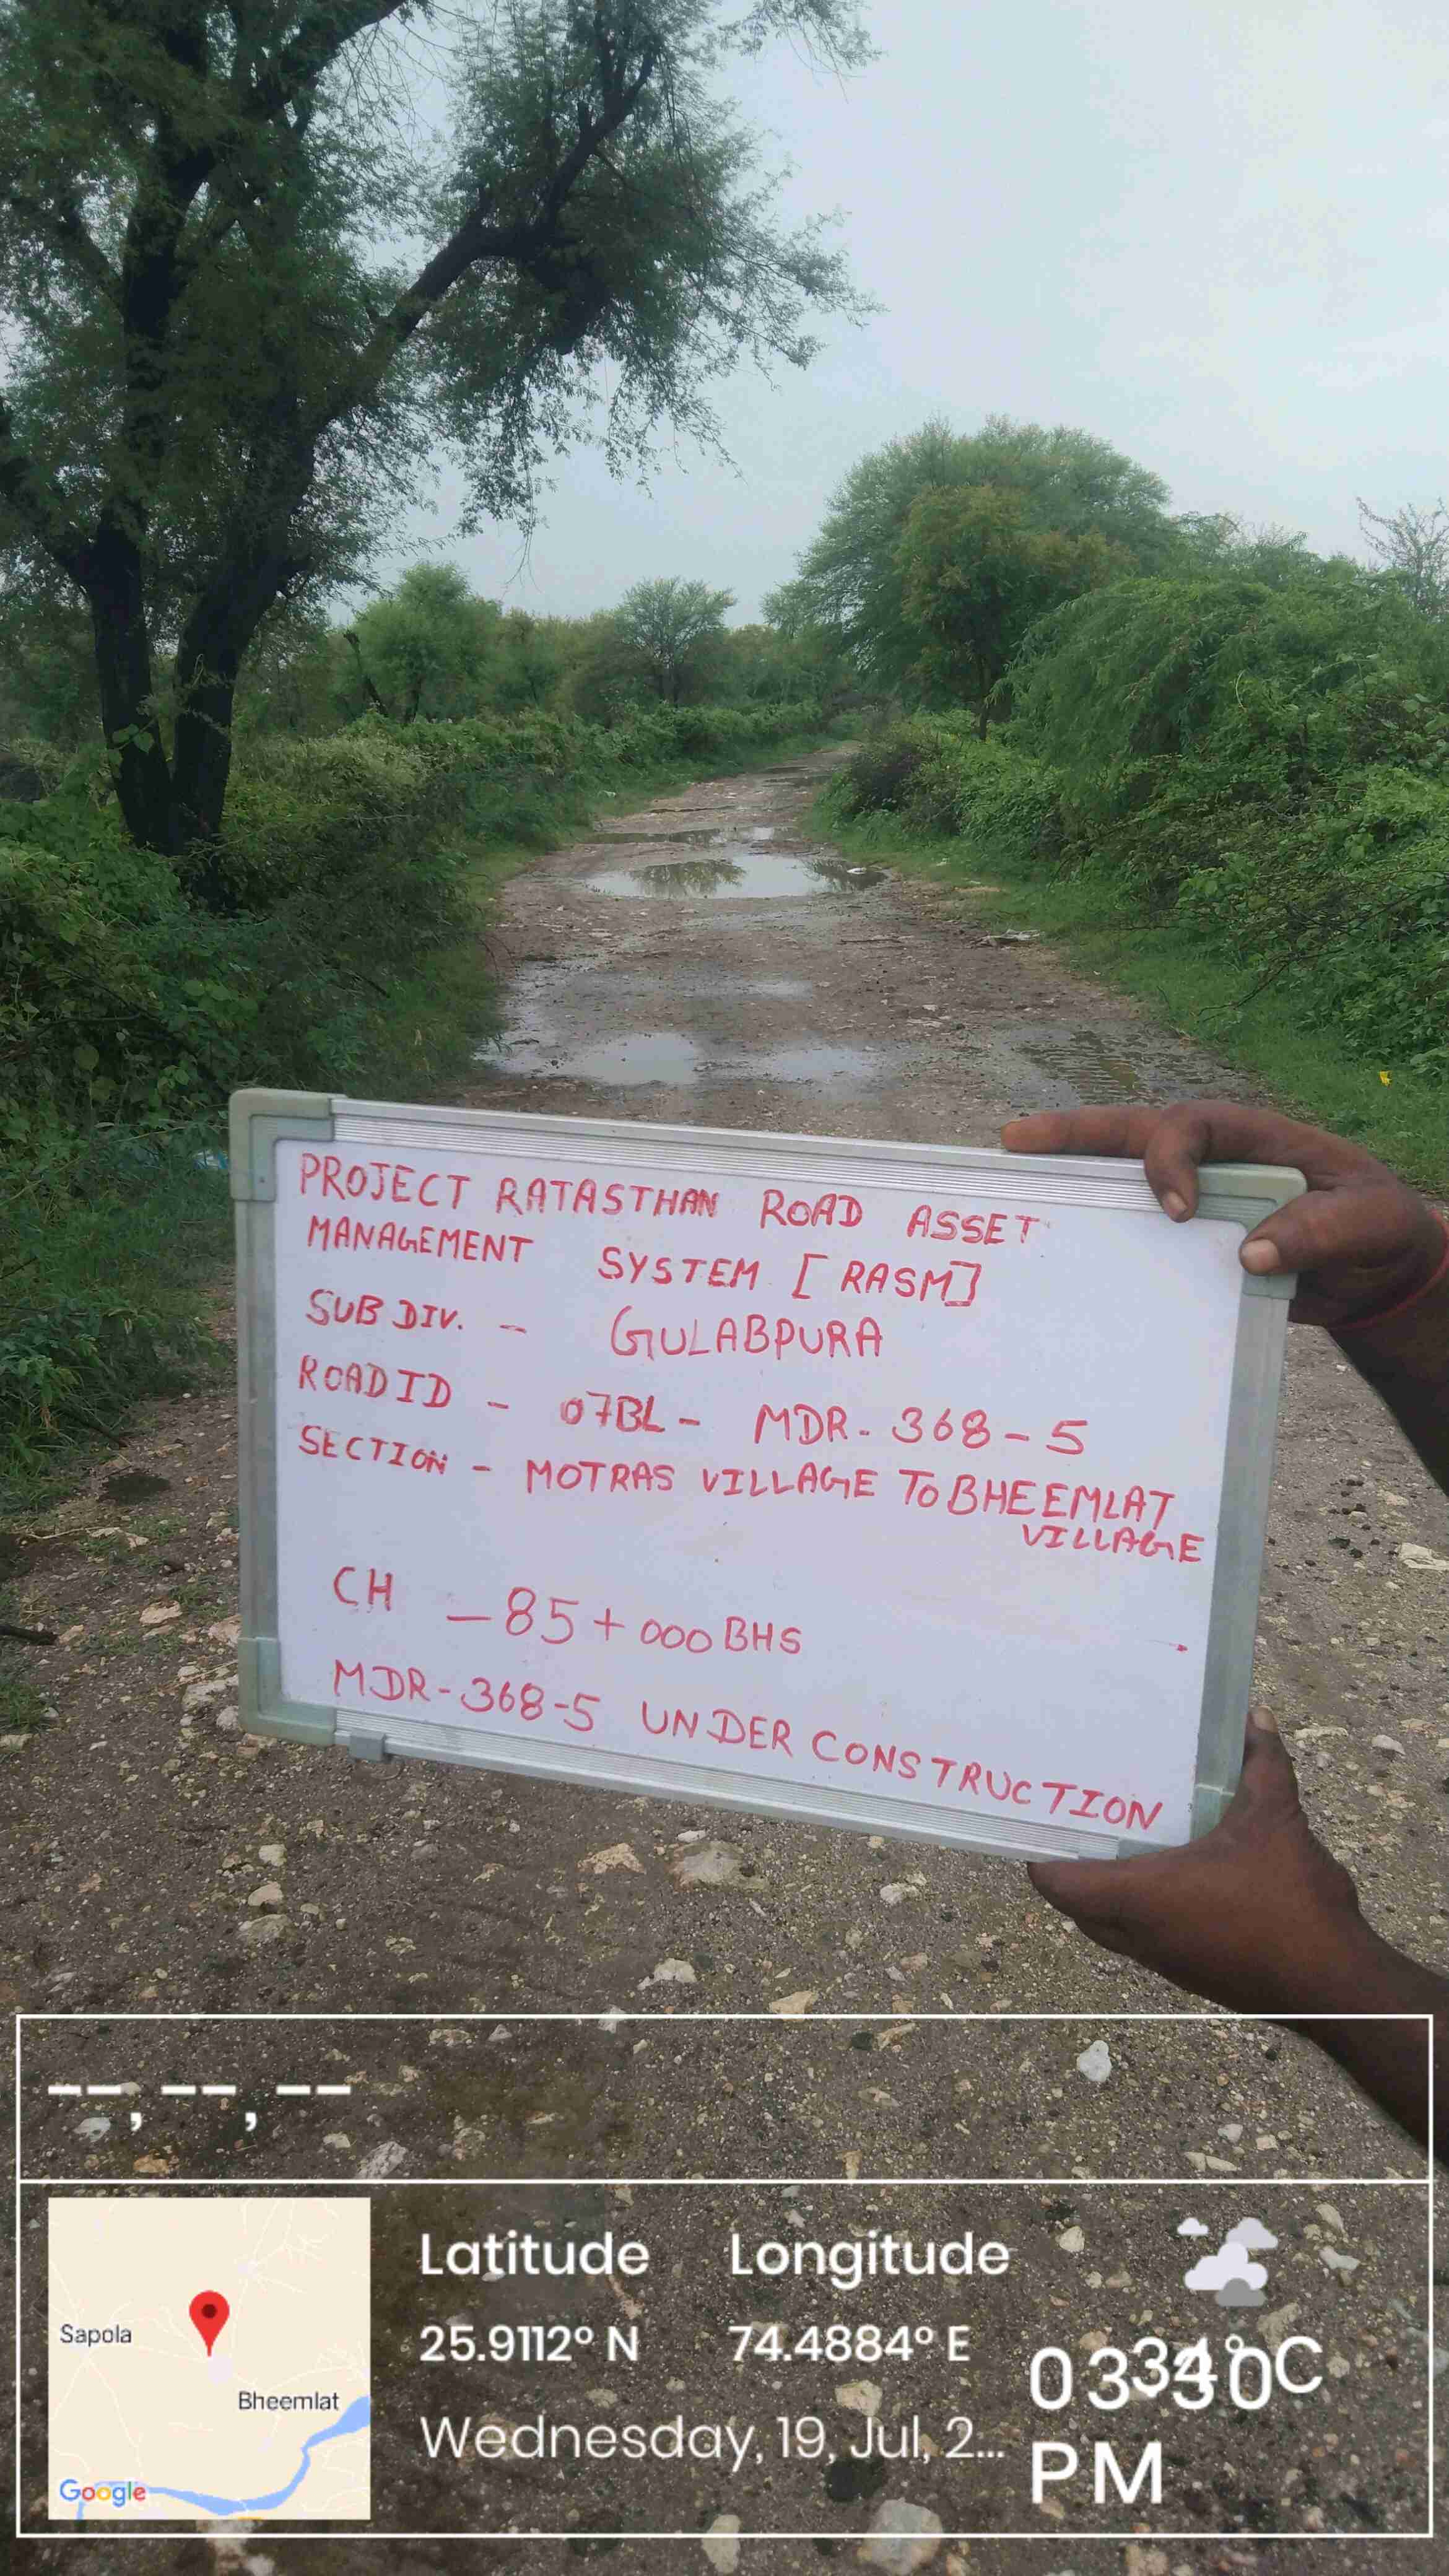 PROJECT RATASTHAN ROAD ASSET
MANAGEMENT SYSTEM [RASM]
SUB DIV. - GULABPURA
ROAD ID - 07BL - MDR-368-5
SECTION - MOTRAS VILLAGE TO BHEEMLAT
VILLAGE
CH - 85+000 BHS
MDR-368-5 UNDER CONSTRUCTION
--, --, --
Latitude Longitude
25.9112° N 74.4884° E
Wednesday, 19, Jul, 2...
PM
Sapola
Bheemlat
Google